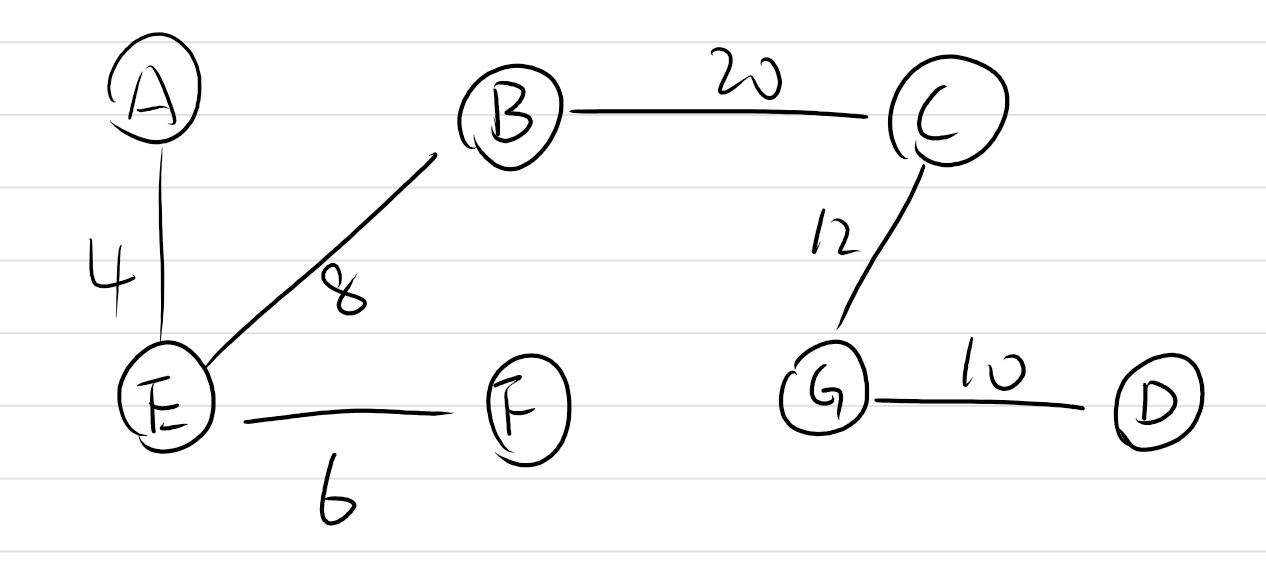 A
B
20
C
4
8
12
E
F
6
G
10
D